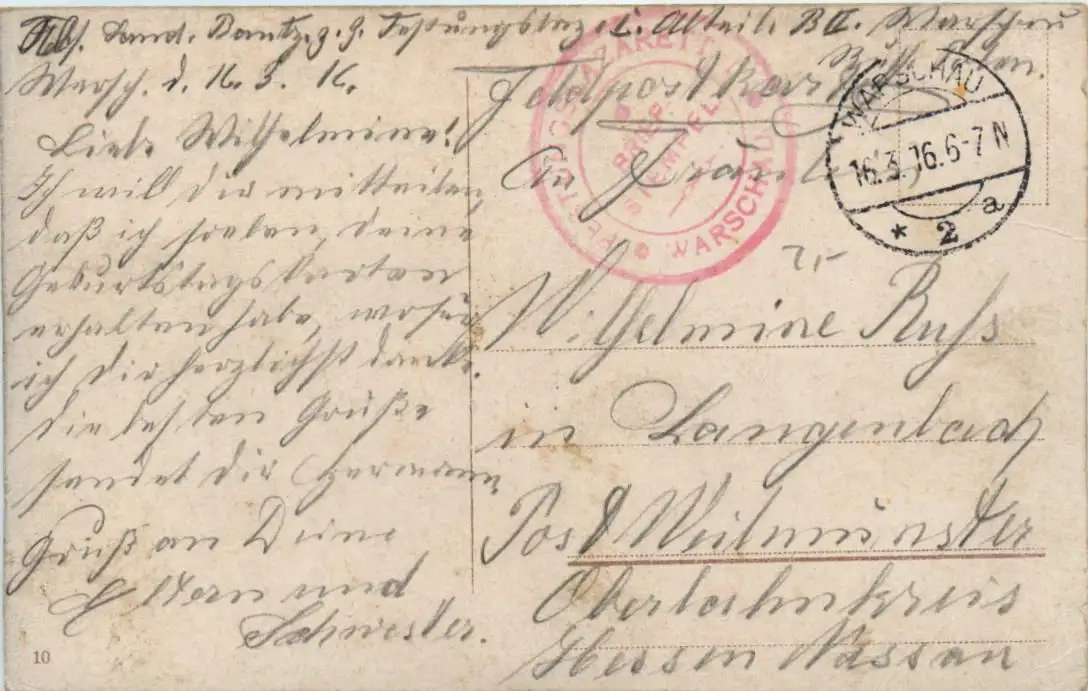 Abs. Land. Bautz. z. Z. Festungslaz. 2. Abteil. B II. Warschau
Russ. Polen.
Warsch. d. 16. 3. 16.
Liebe Wilhelmine!
Ich will dir mitteilen,
daß ich soeben, deine
Geburtstagskarten
erhalten habe, wofür
ich dir herzlichst danke.
Die besten Grüße
sendet dir Hermann
Gruß an Deine
Eltern und
Schwester.
10
Feldpostkarte
An Fräulein
Wilhelmine Russ
in Langenbach
Post Weilmünster
Oberlahnkreis
Hessen Nassau
FESTUNGSLAZARETT
WARSCHAU
BRIEF
STEMPEL
WARSCHAU
16.3.16.6-7N
* 2 a
2,-